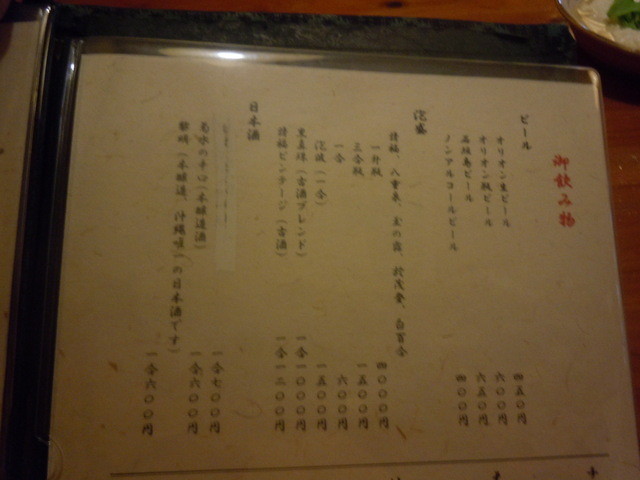 御飲み物
ビール
オリオン生ビール 四五〇円
オリオン瓶ビール 六〇〇円
石垣島ビール 六五〇円
ノンアルコールビール 四〇〇円
泡盛
請福、八重泉、玉の露、於茂登、白百合
一升瓶 四〇〇〇円
三合瓶 一五〇〇円
一合 六〇〇円
泡波（一合） 一五〇〇円
黒真珠（古酒ブレンド） 一合一〇〇〇円
請福ビンテージ（古酒） 一合一二〇〇円
日本酒
一合七〇〇円
菊水の辛口（本醸造酒） 一合六〇〇円
黎明（本醸造、沖縄唯一の日本酒です） 一合六〇〇円